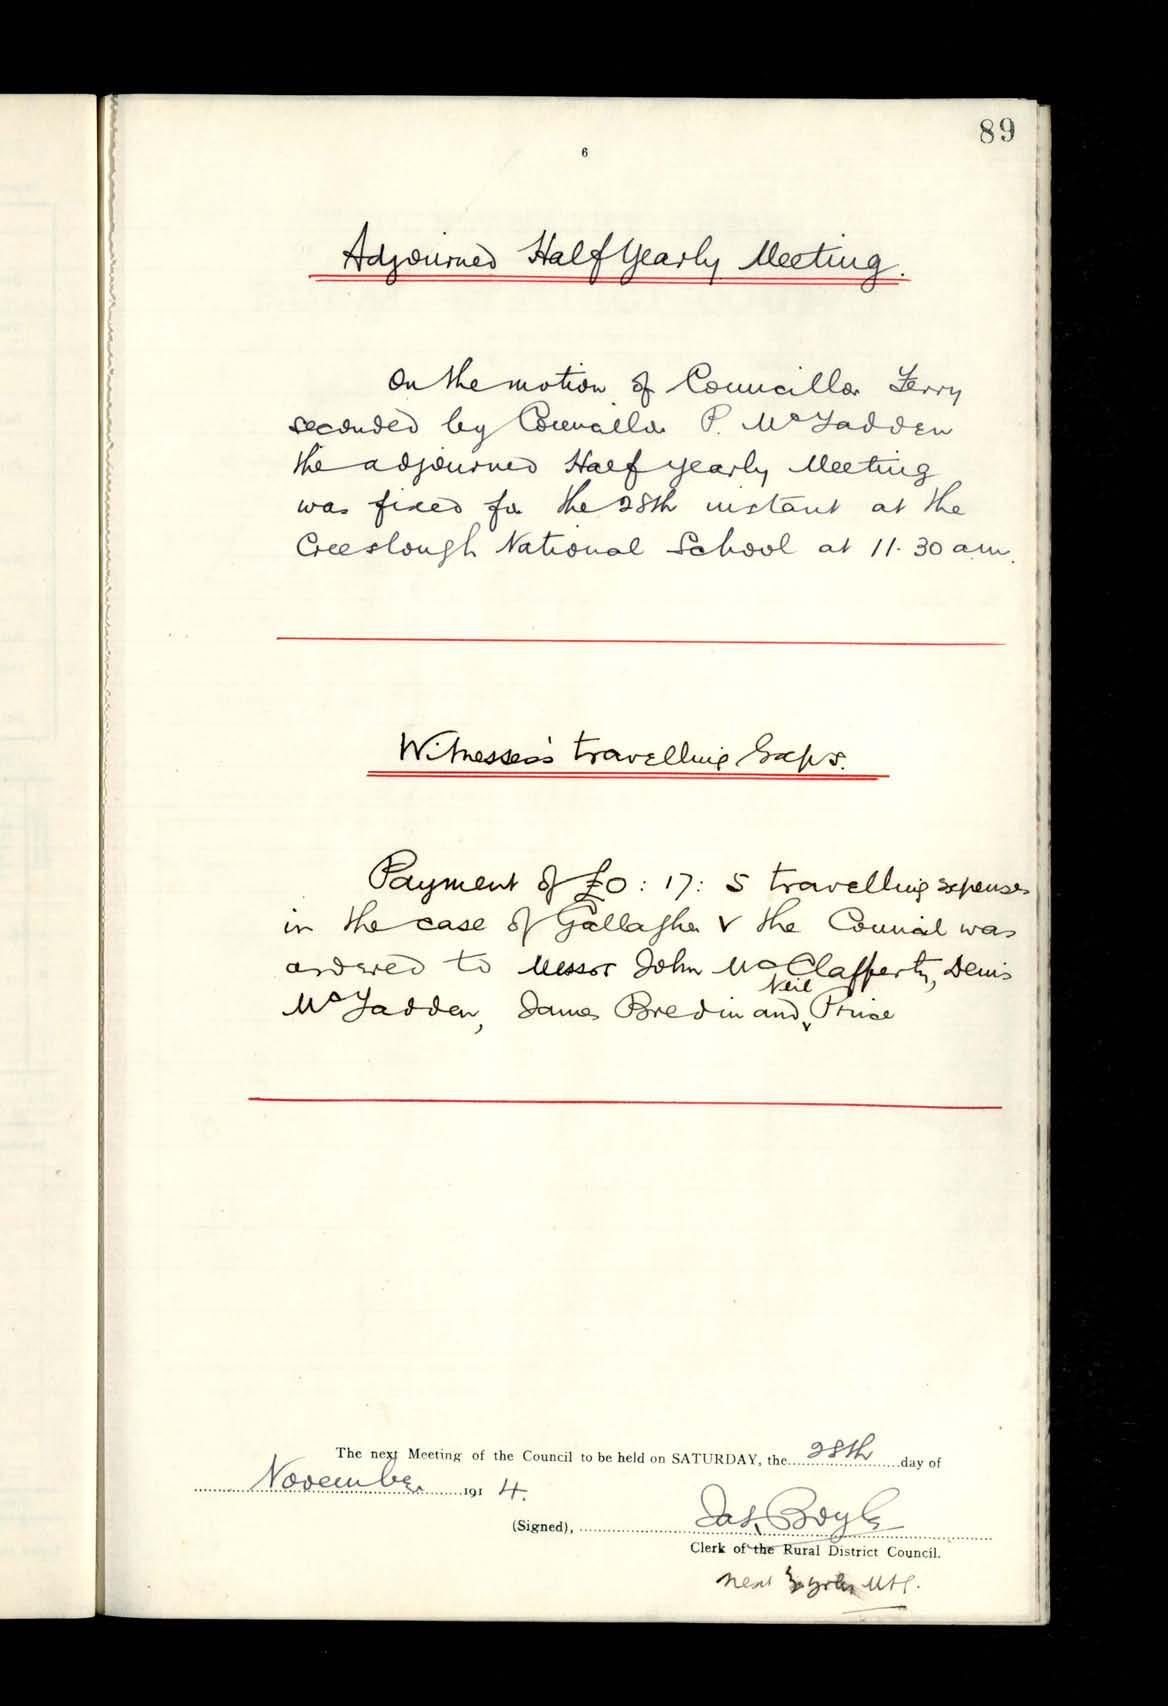 89
6
Adjourned Half Yearly Meeting.
On the motion of Councillor Ferry
seconded by Councillor P. McFadden
the adjourned Half yearly Meeting
was fixed for the 28th instant at the
Creeslough National School at 11.30 am.
Witnesses's travelling Exps.
Payment of £0 : 17 : 5 travelling expenses
in the case of Gallagher v the Council was
ordered to Messrs John McClafferty, Denis
McFadden, James Bredin and Neil Price
The next Meeting of the Council to be held on SATURDAY, the 28th day of
November 1914.
(Signed), Jas. Boyle
Clerk of the Rural District Council.
next